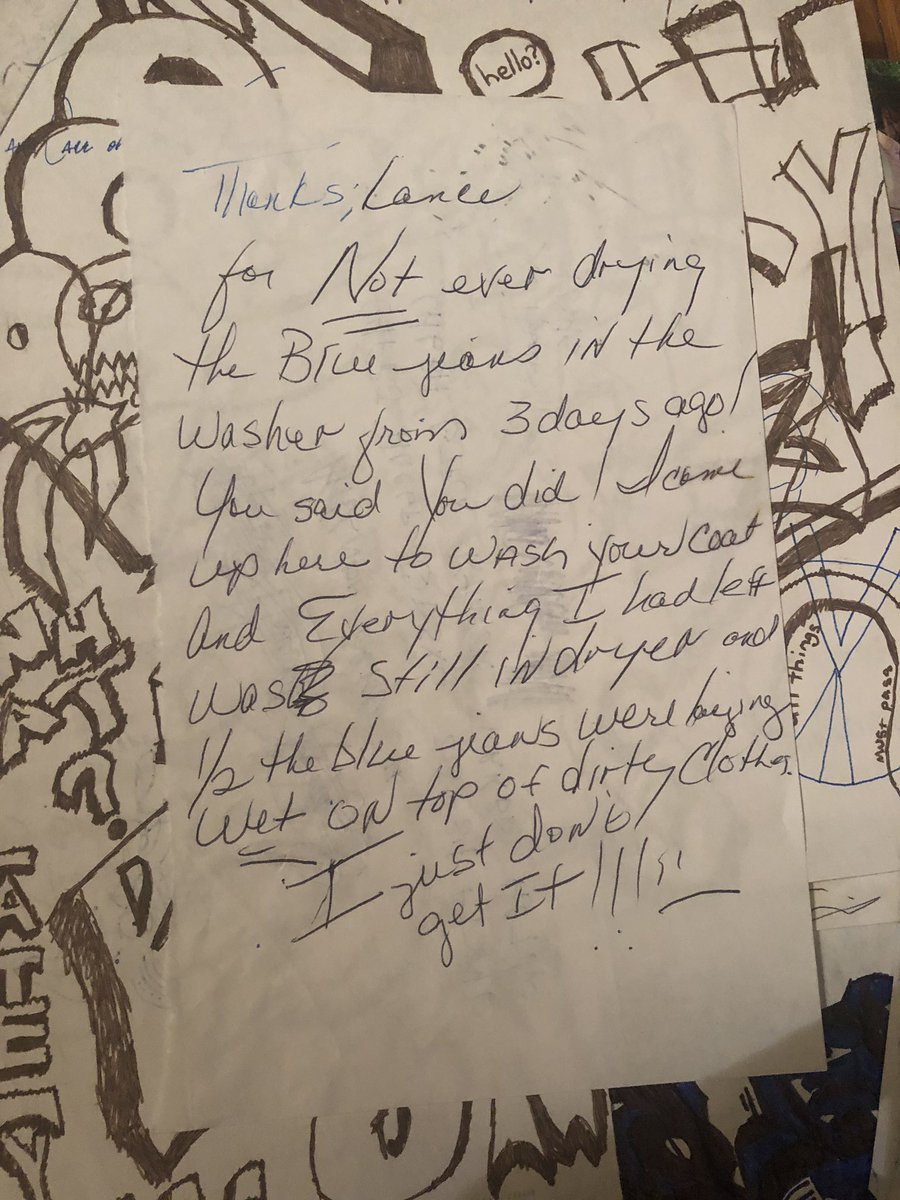 hello?
ALL OF
Thanks, Lance
for Not ever drying
the Blue jeans in the
Washer from 3 days ago!
You said You did! I come
up here to wash your coat
And Everything I had left
was still in dryer and
1/2 the blue jeans were laying
wet on top of dirty Clothes.
I just don't
get It !!!!!
all things
must pass